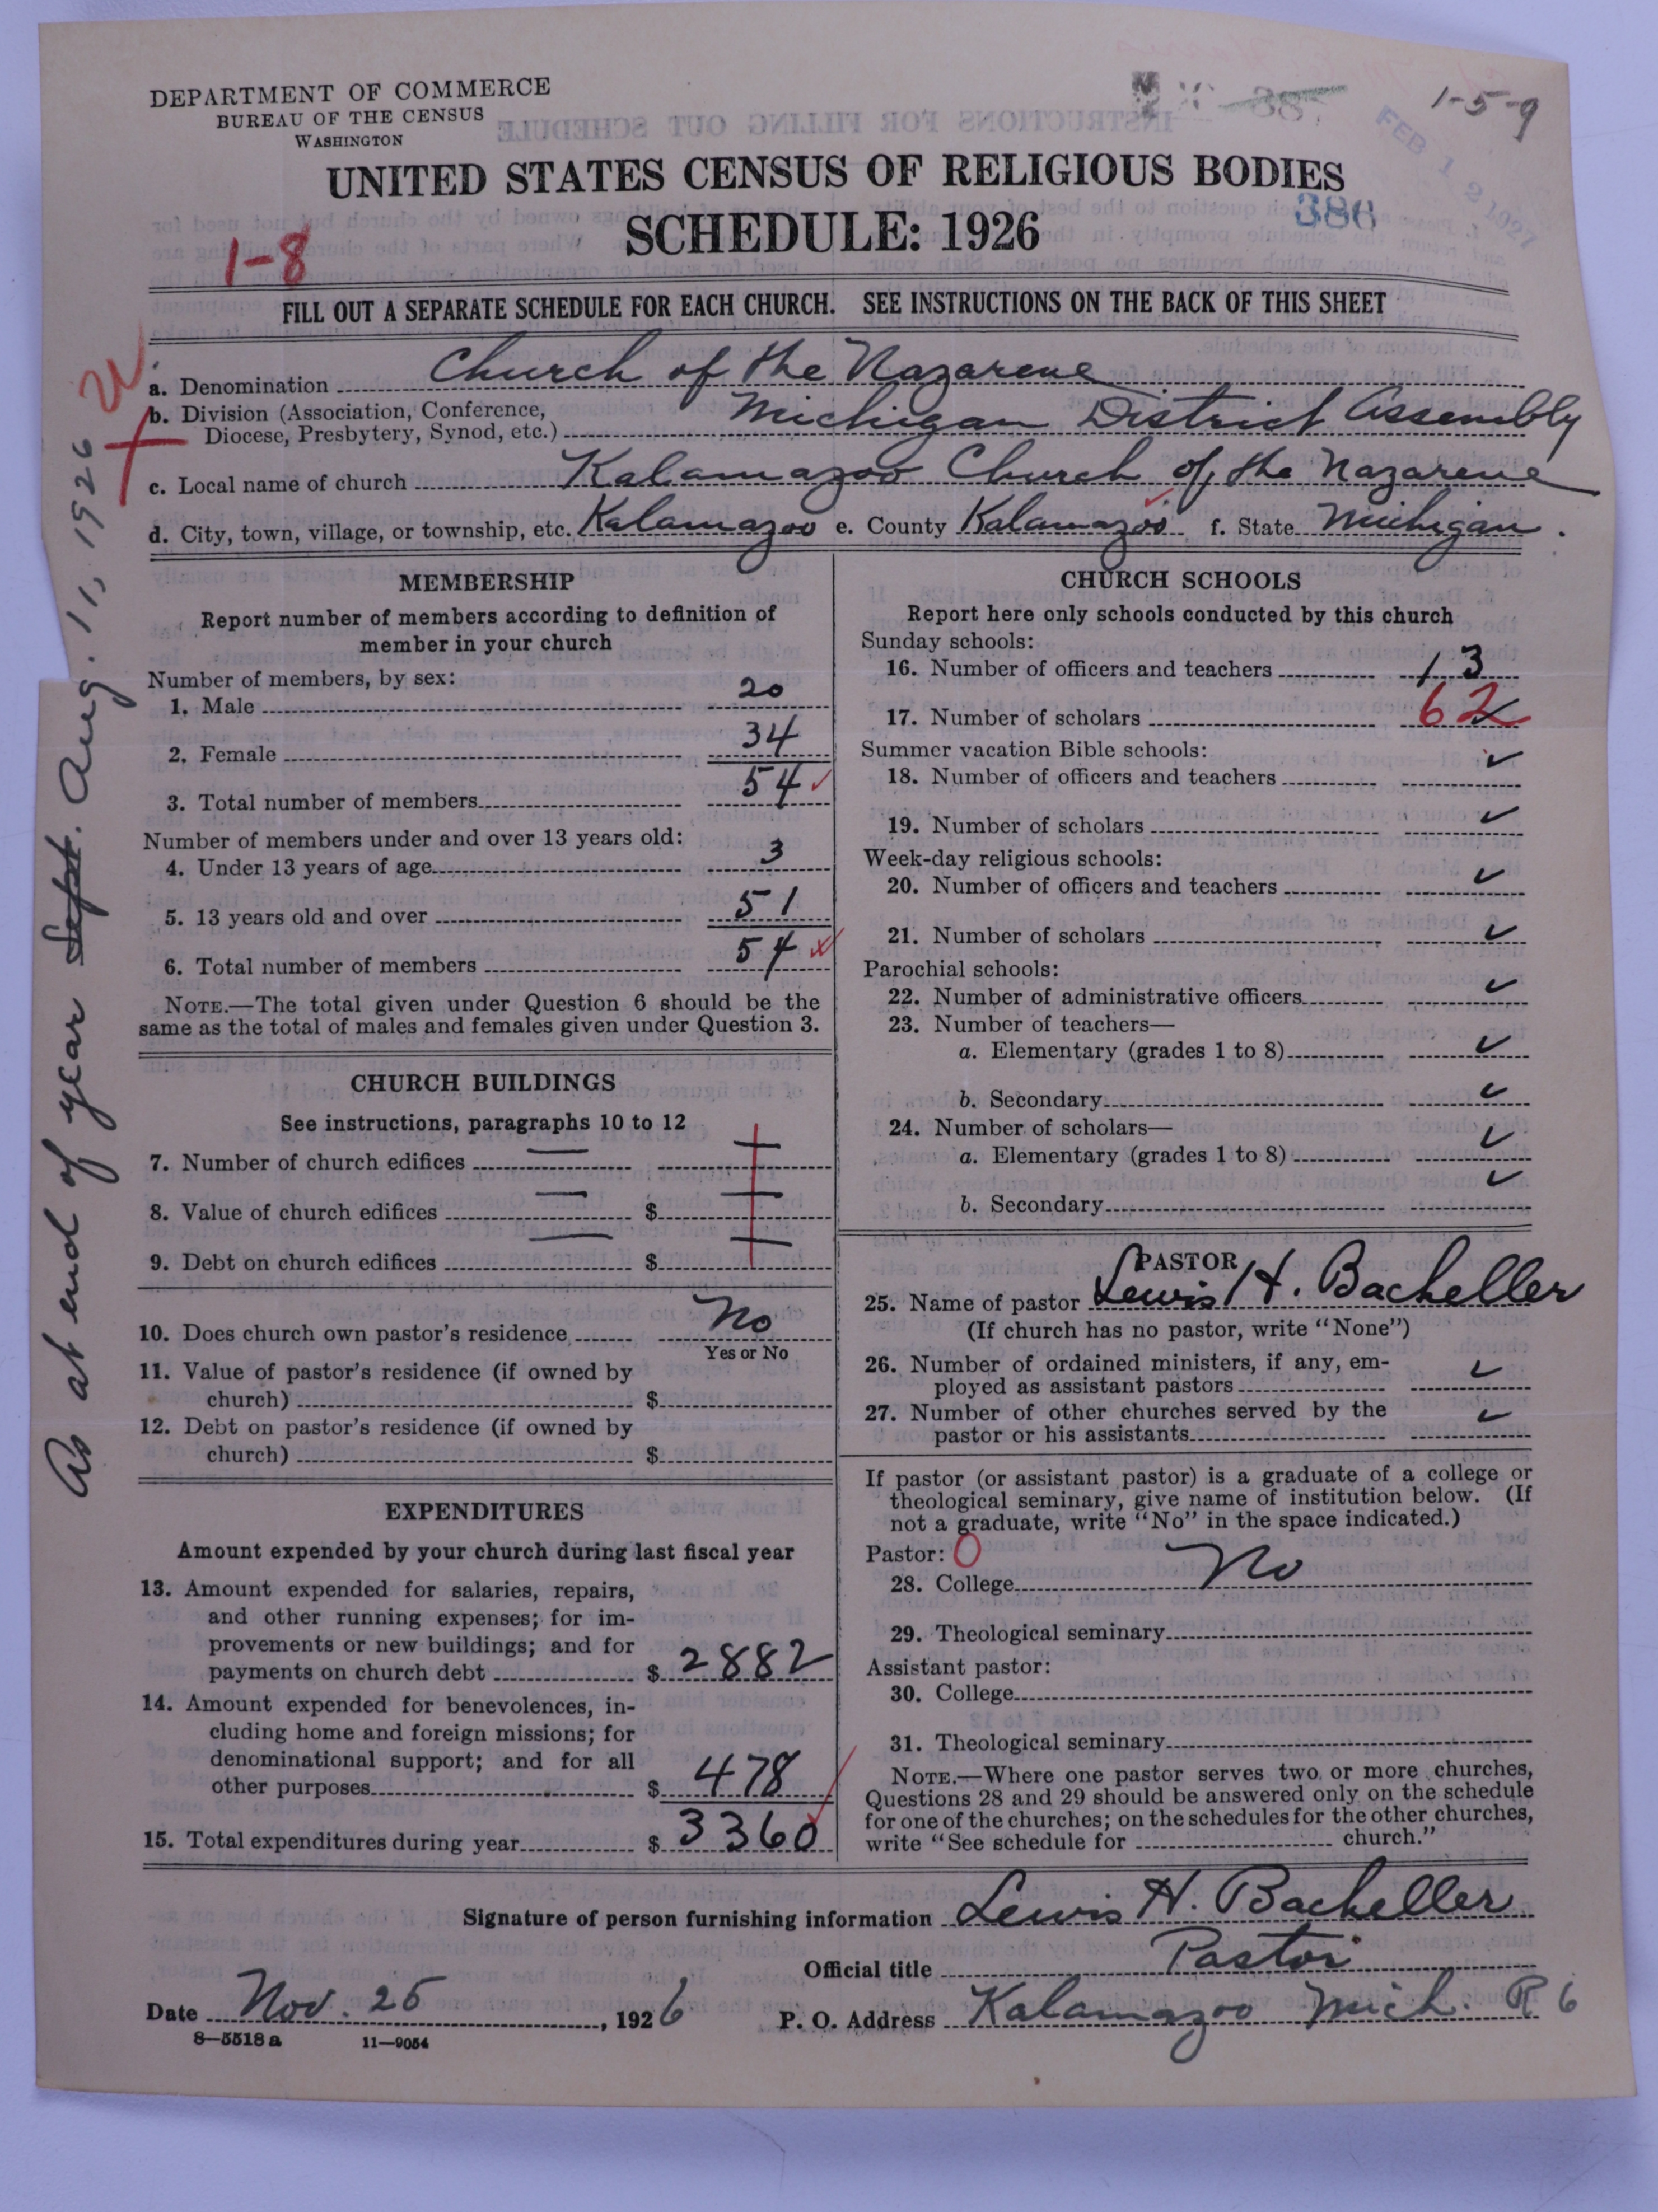 DEPARTMENT OF COMMERCE
BUREAU OF THE CENSUS
WASHINGTON
1-5-9
FEB 12 1927
UNITED STATES CENSUS OF RELIGIOUS BODIES
SCHEDULE: 1926
386
1-8
FILL OUT A SEPARATE SCHEDULE FOR EACH CHURCH. SEE INSTRUCTIONS ON THE BACK OF THIS SHEET
a. Denomination Church of the Nazarene
b. Division (Association, Conference, Diocese, Presbytery, Synod, etc.) Michigan District Assembly
c. Local name of church Kalamazoo Church of the Nazarene
d. City, town, village, or township, etc. Kalamazoo e. County Kalamazoo f. State Michigan.
As at end of year Sept. Aug. 11, 1926
MEMBERSHIP
Report number of members according to definition of
member in your church
Number of members, by sex:
1. Male 20
2. Female 34
3. Total number of members 54
Number of members under and over 13 years old:
4. Under 13 years of age 3
5. 13 years old and over 51
6. Total number of members 54
NOTE.—The total given under Question 6 should be the
same as the total of males and females given under Question 3.
CHURCH BUILDINGS
See instructions, paragraphs 10 to 12
7. Number of church edifices —
8. Value of church edifices — $
9. Debt on church edifices — $
10. Does church own pastor's residence No
Yes or No
11. Value of pastor's residence (if owned by
church) $
12. Debt on pastor's residence (if owned by
church) $
EXPENDITURES
Amount expended by your church during last fiscal year
13. Amount expended for salaries, repairs,
and other running expenses; for im-
provements or new buildings; and for
payments on church debt $ 2882
14. Amount expended for benevolences, in-
cluding home and foreign missions; for
denominational support; and for all
other purposes $ 478
15. Total expenditures during year $ 3360
CHURCH SCHOOLS
Report here only schools conducted by this church
Sunday schools:
16. Number of officers and teachers 13
17. Number of scholars 62
Summer vacation Bible schools:
18. Number of officers and teachers ✓
19. Number of scholars ✓
Week-day religious schools:
20. Number of officers and teachers ✓
21. Number of scholars ✓
Parochial schools:
22. Number of administrative officers ✓
23. Number of teachers—
a. Elementary (grades 1 to 8) ✓
b. Secondary ✓
24. Number of scholars—
a. Elementary (grades 1 to 8) ✓
b. Secondary ✓
PASTOR
25. Name of pastor Lewis H. Bacheller
(If church has no pastor, write "None")
26. Number of ordained ministers, if any, em-
ployed as assistant pastors ✓
27. Number of other churches served by the
pastor or his assistants ✓
If pastor (or assistant pastor) is a graduate of a college or
theological seminary, give name of institution below. (If
not a graduate, write "No" in the space indicated.)
Pastor: O
28. College No
29. Theological seminary
Assistant pastor:
30. College
31. Theological seminary
NOTE.—Where one pastor serves two or more churches,
Questions 28 and 29 should be answered only on the schedule
for one of the churches; on the schedules for the other churches,
write "See schedule for church."
Signature of person furnishing information Lewis H. Bacheller
Official title Pastor
Date Nov. 25, 1926 P. O. Address Kalamazoo Mich. R 6
8—5518 a 11—9054